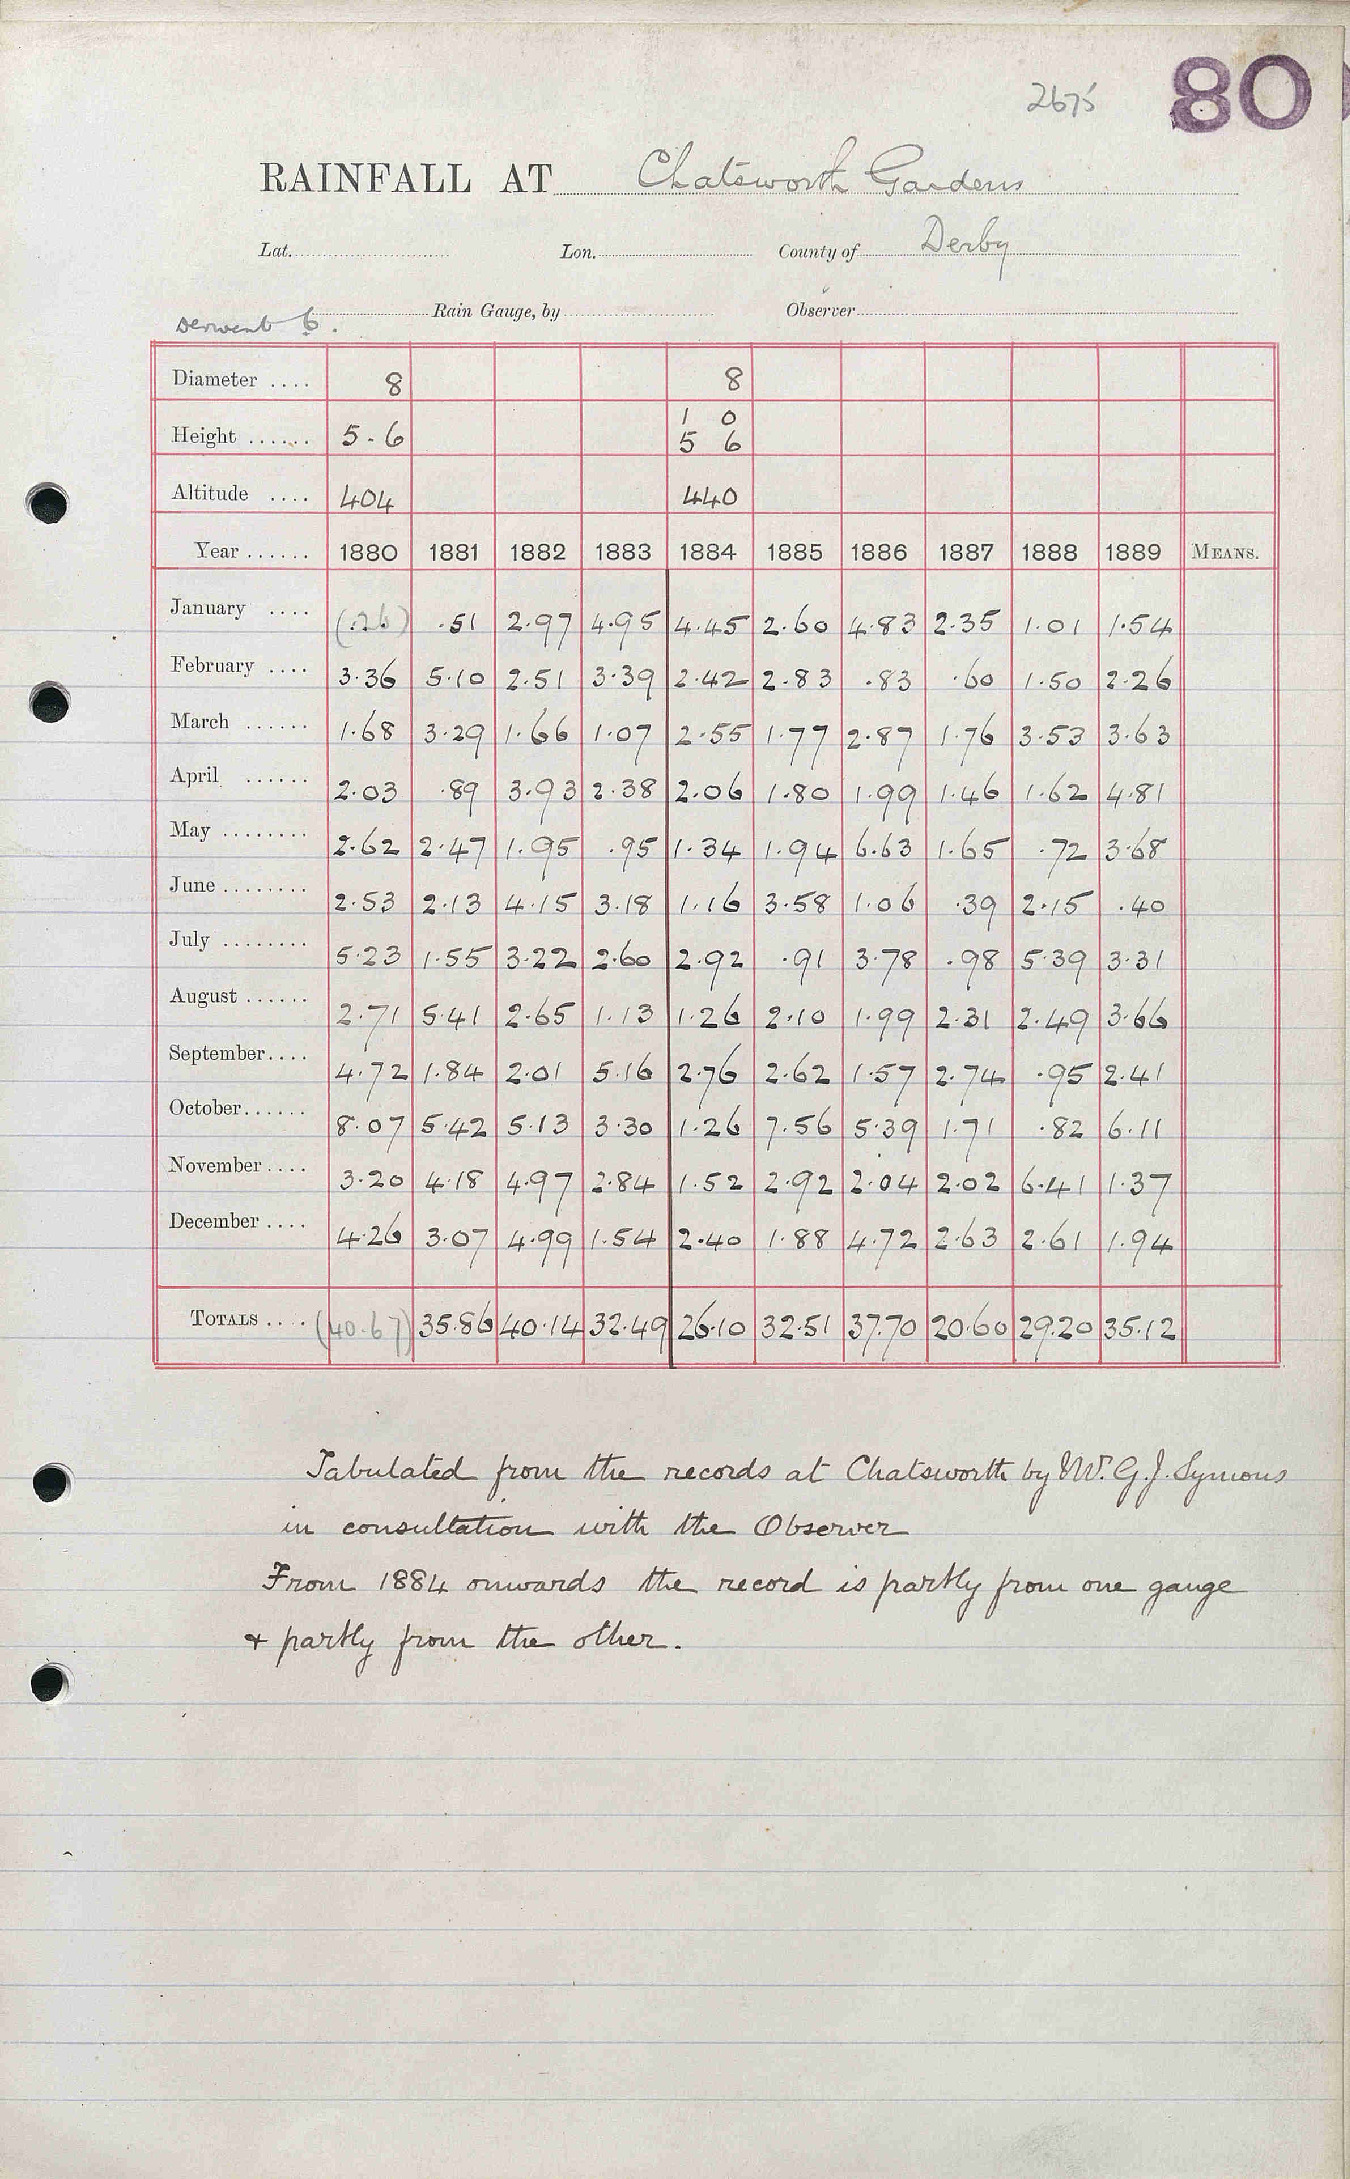 2675 80
RAINFALL AT Chatsworth Gardens
Lat. Lon. County of Derby
Derwent 6. Rain Gauge, by Observer
Diameter .... 8 8
Height ...... 5.6 1 0
5 6
Altitude .... 404 440
Year ...... 1880 1881 1882 1883 1884 1885 1886 1887 1888 1889 MEANS.
January .... (.26) .51 2.97 4.95 4.45 2.60 4.83 2.35 1.01 1.54
February .... 3.36 5.10 2.51 3.39 2.42 2.83 .83 .60 1.50 2.26
March ...... 1.68 3.29 1.66 1.07 2.55 1.77 2.87 1.76 3.53 3.63
April ...... 2.03 .89 3.93 2.38 2.06 1.80 1.99 1.46 1.62 4.81
May ........ 2.62 2.47 1.95 .95 1.34 1.94 6.63 1.65 .72 3.68
June ........ 2.53 2.13 4.15 3.18 1.16 3.58 1.06 .39 2.15 .40
July ........ 5.23 1.55 3.22 2.60 2.92 .91 3.78 .98 5.39 3.31
August ...... 2.71 5.41 2.65 1.13 1.26 2.10 1.99 2.31 2.49 3.66
September.... 4.72 1.84 2.01 5.16 2.76 2.62 1.57 2.74 .95 2.41
October...... 8.07 5.42 5.13 3.30 1.26 7.56 5.39 1.71 .82 6.11
November.... 3.20 4.18 4.97 2.84 1.52 2.92 2.04 2.02 6.41 1.37
December .... 4.26 3.07 4.99 1.54 2.40 1.88 4.72 2.63 2.61 1.94
TOTALS .... (40.67) 35.86 40.14 32.49 26.10 32.51 37.70 20.60 29.20 35.12
Tabulated from the records at Chatsworth by Mr. G. J. Symons
in consultation with the Observer
From 1884 onwards the record is partly from one gauge
& partly from the other.